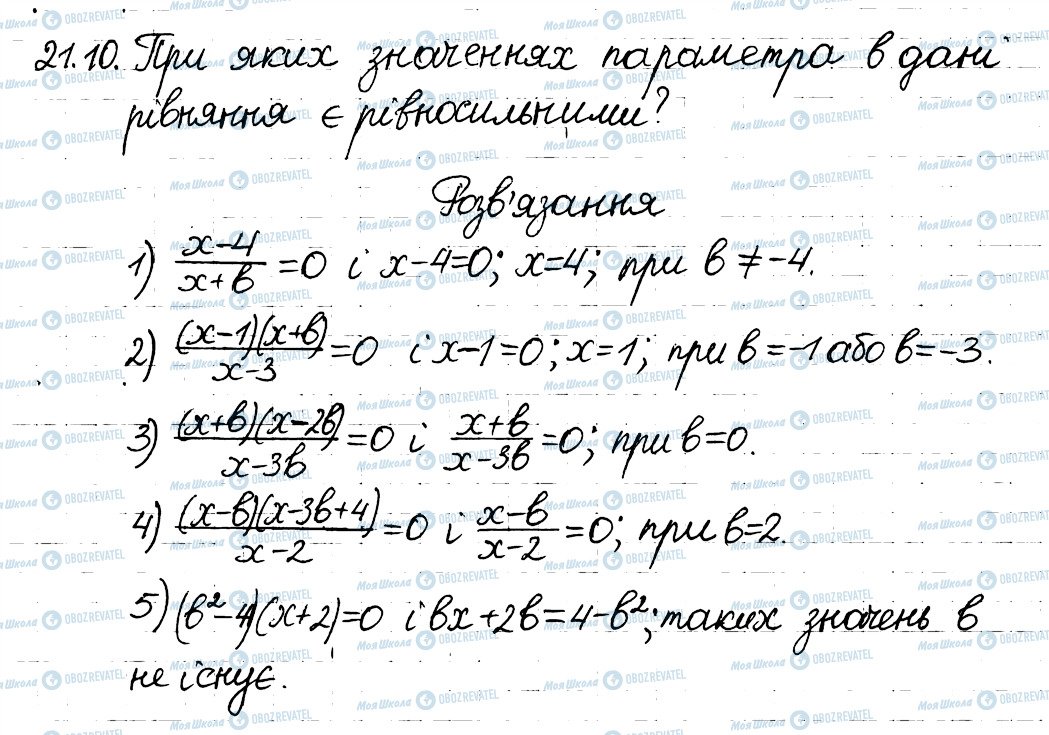 21.10. При яких значеннях параметра в дані
рівняння є рівносильними?
Розв'язання
1) (x-4)/(x+в) =0 і x-4=0; x=4; при в ≠ -4.
2) ((x-1)(x+в))/(x-3) =0 і x-1=0; x=1; при в=-1 або в=-3.
3) ((x+в)(x-2в))/(x-3в) =0 і (x+в)/(x-3в) =0; при в=0.
4) ((x-в)(x-3в+4))/(x-2) =0 і (x-в)/(x-2) =0; при в=2.
5) (в²-4)(x+2)=0 і вx+2в=4-в²; таких значень в
не існує.